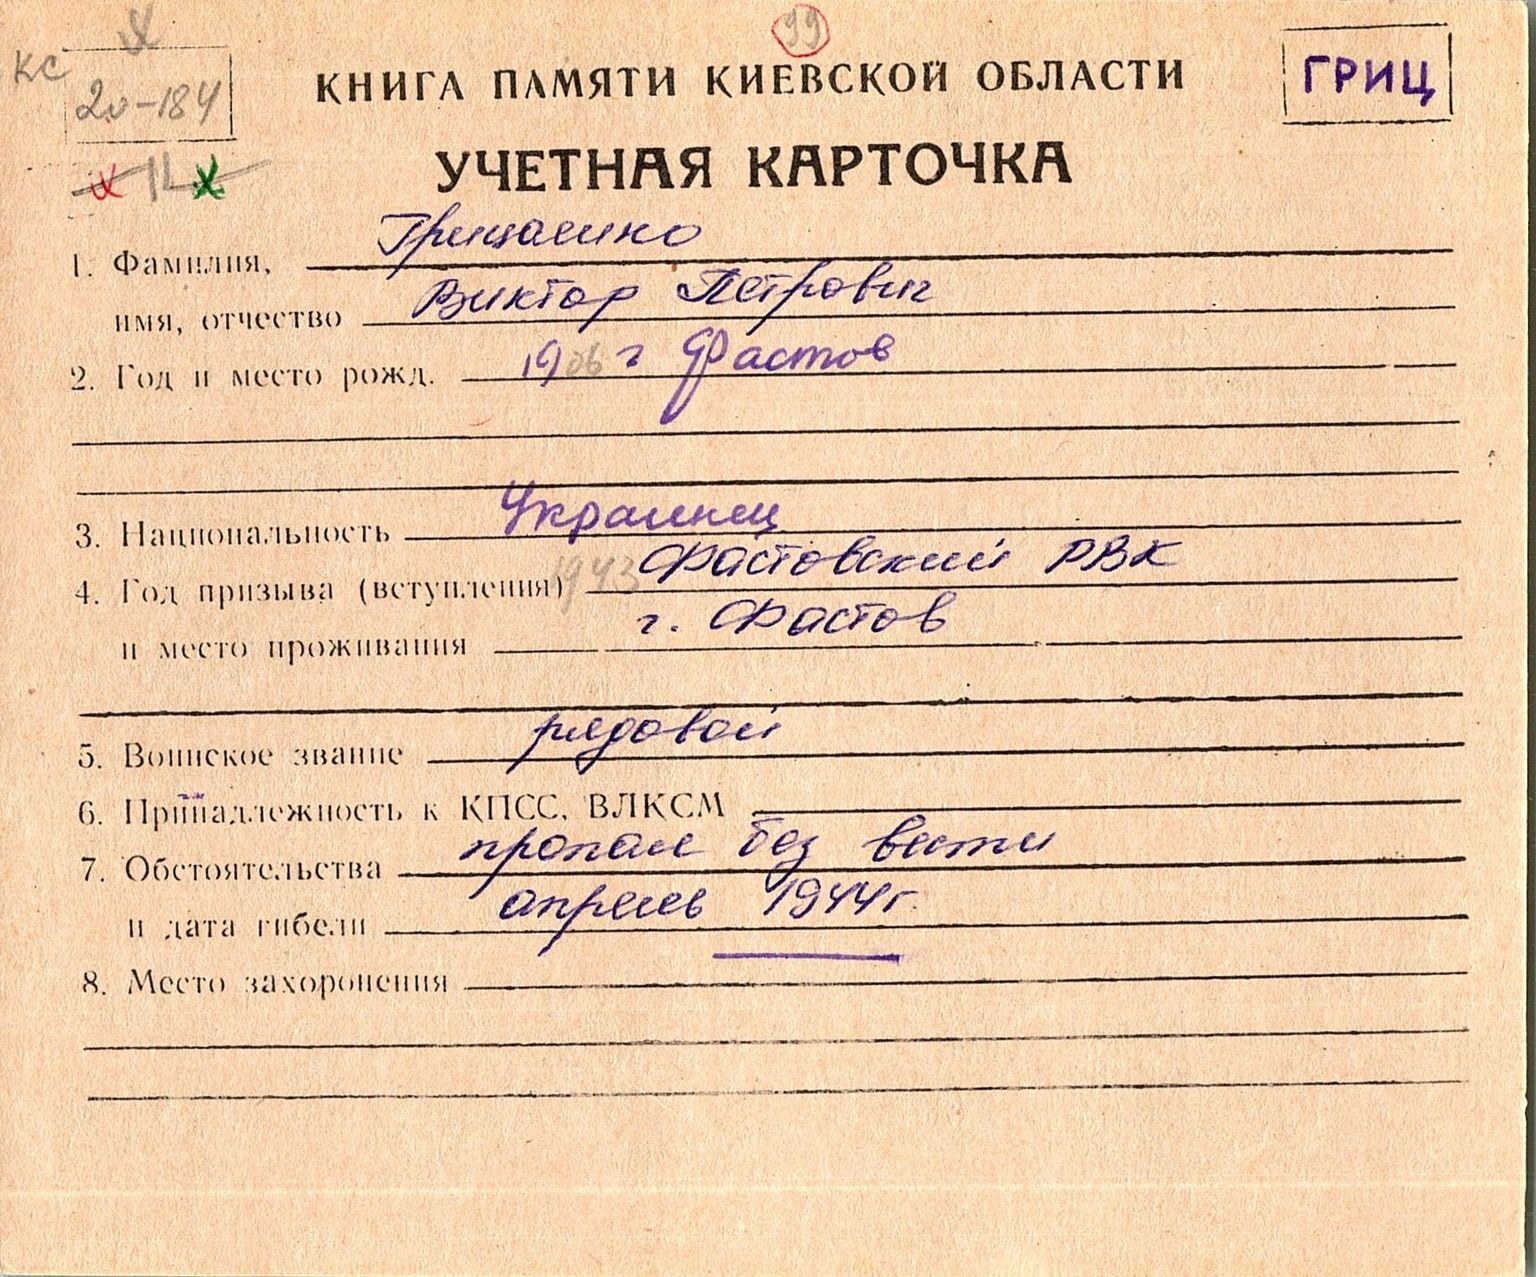 КС
99
20-184
КНИГА ПАМЯТИ КИЕВСКОЙ ОБЛАСТИ
ГРИЦ
УЧЕТНАЯ КАРТОЧКА
1. Фамилия, Грицаенко
имя, отчество Виктор Петрович
2. Год и место рожд. 1906 г Фастов
3. Национальность Украинец
4. Год призыва (вступления) 1943 Фастовский РВК
и место проживания г. Фастов
5. Воинское звание рядовой
6. Принадлежность к КПСС, ВЛКСМ
7. Обстоятельства пропал без вести
и дата гибели апрель 1944г.
8. Место захоронения